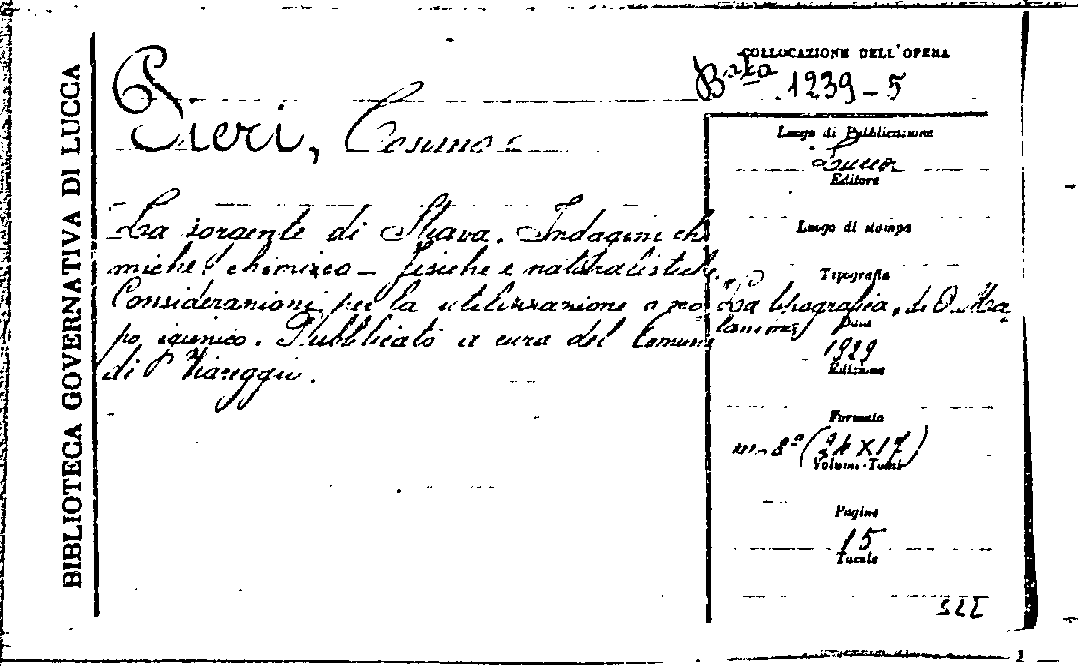 BIBLIOTECA GOVERNATIVA DI LUCCA
COLLOCAZIONE DELL'OPERA
Busta 1239-5
Pieri, Cosimo
La sorgente di Stiava. Indagini chi
miche, chimico-fisiche e naturalistiche.
Considerazioni per la utilizzazione a sco
po igienico. Pubblicato a cura del Comune
di Viareggio.
Luogo di Pubblicazione
Lucca
Editore
Luogo di stampa
Tipografia
La tipografia, di O. Ma
Data
1929
Edizione
Formato
in-8° (24x17)
Volumi-Tomi
Pagine
15
Tavole
322
1